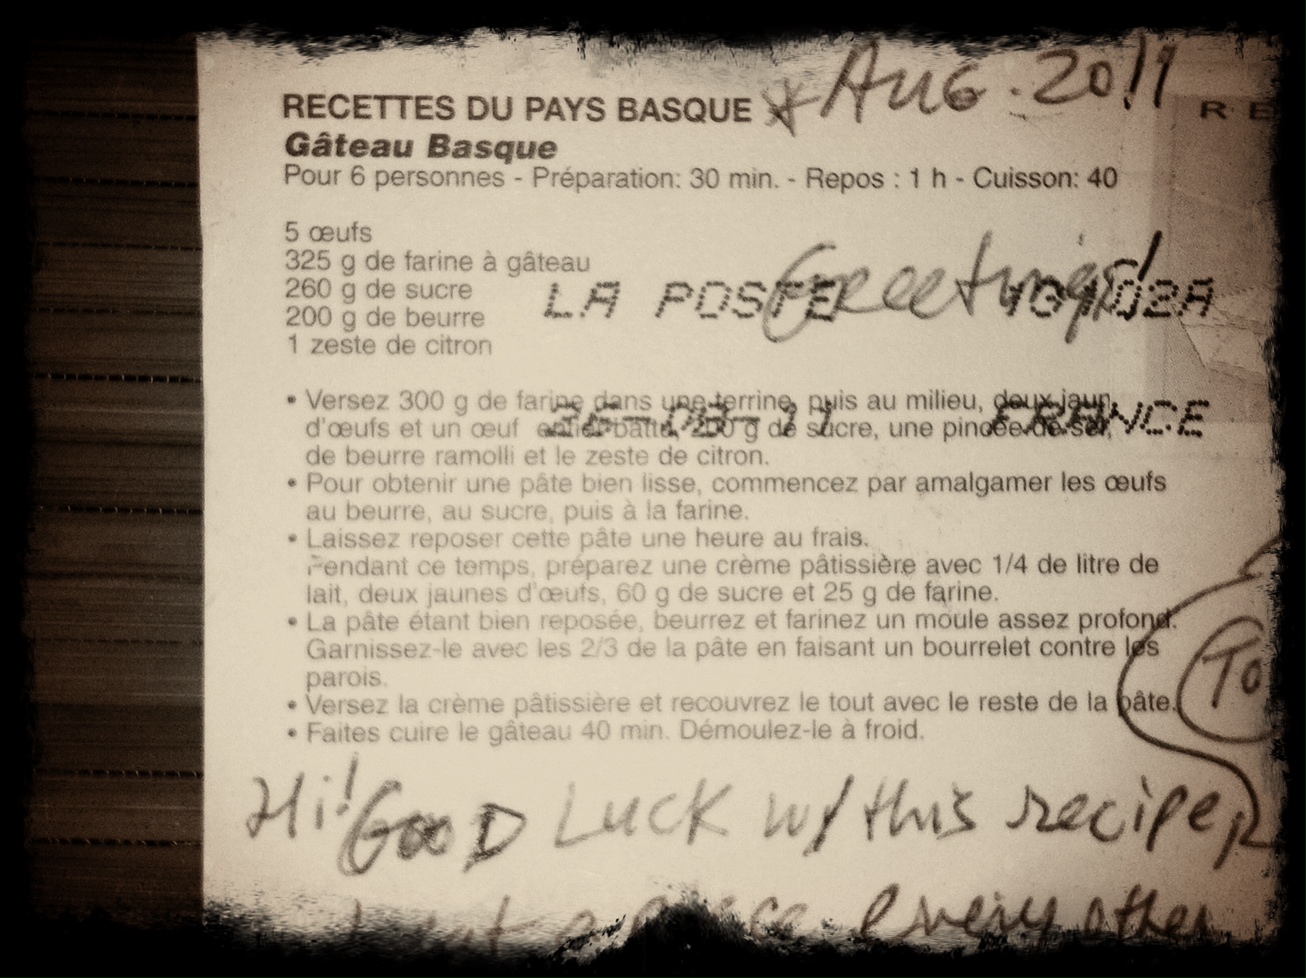 Aug. 2011
RECETTES DU PAYS BASQUE
R E
Gâteau Basque
Pour 6 personnes - Préparation: 30 min. - Repos : 1 h - Cuisson: 40
5 œufs
325 g de farine à gâteau
260 g de sucre
200 g de beurre
1 zeste de citron
LA POSTE
Greetings!
• Versez 300 g de farine dans une terrine, puis au milieu, deux jaun
d'œufs et un œuf entier battu, 200 g de sucre, une pincée de sel,
de beurre ramolli et le zeste de citron.
26-08-11 FRANCE
• Pour obtenir une pâte bien lisse, commencez par amalgamer les œufs
au beurre, au sucre, puis à la farine.
• Laissez reposer cette pâte une heure au frais.
Pendant ce temps, préparez une crème pâtissière avec 1/4 de litre de
lait, deux jaunes d'œufs, 60 g de sucre et 25 g de farine.
• La pâte étant bien reposée, beurrez et farinez un moule assez profond.
Garnissez-le avec les 2/3 de la pâte en faisant un bourrelet contre les
parois.
• Versez la crème pâtissière et recouvrez le tout avec le reste de la pâte.
• Faites cuire le gâteau 40 min. Démoulez-le à froid.
To
Hi! Good Luck w/ this recipe,
every other